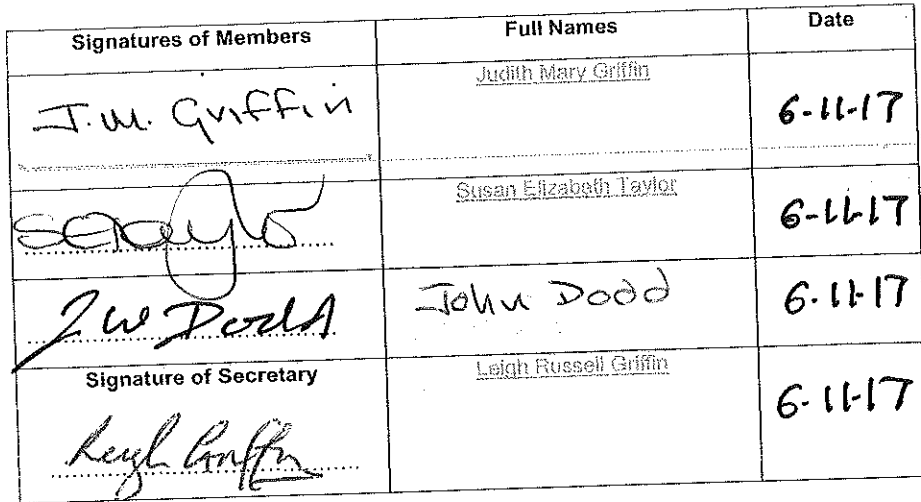 Signatures of Members Full Names Date
J.M. Griffin Judith Mary Griffin 6-11-17
SETaylor Susan Elizabeth Taylor 6-11-17
J W Dodd John Dodd 6-11-17
Signature of Secretary Leigh Russell Griffin 6-11-17
Leigh Griffin